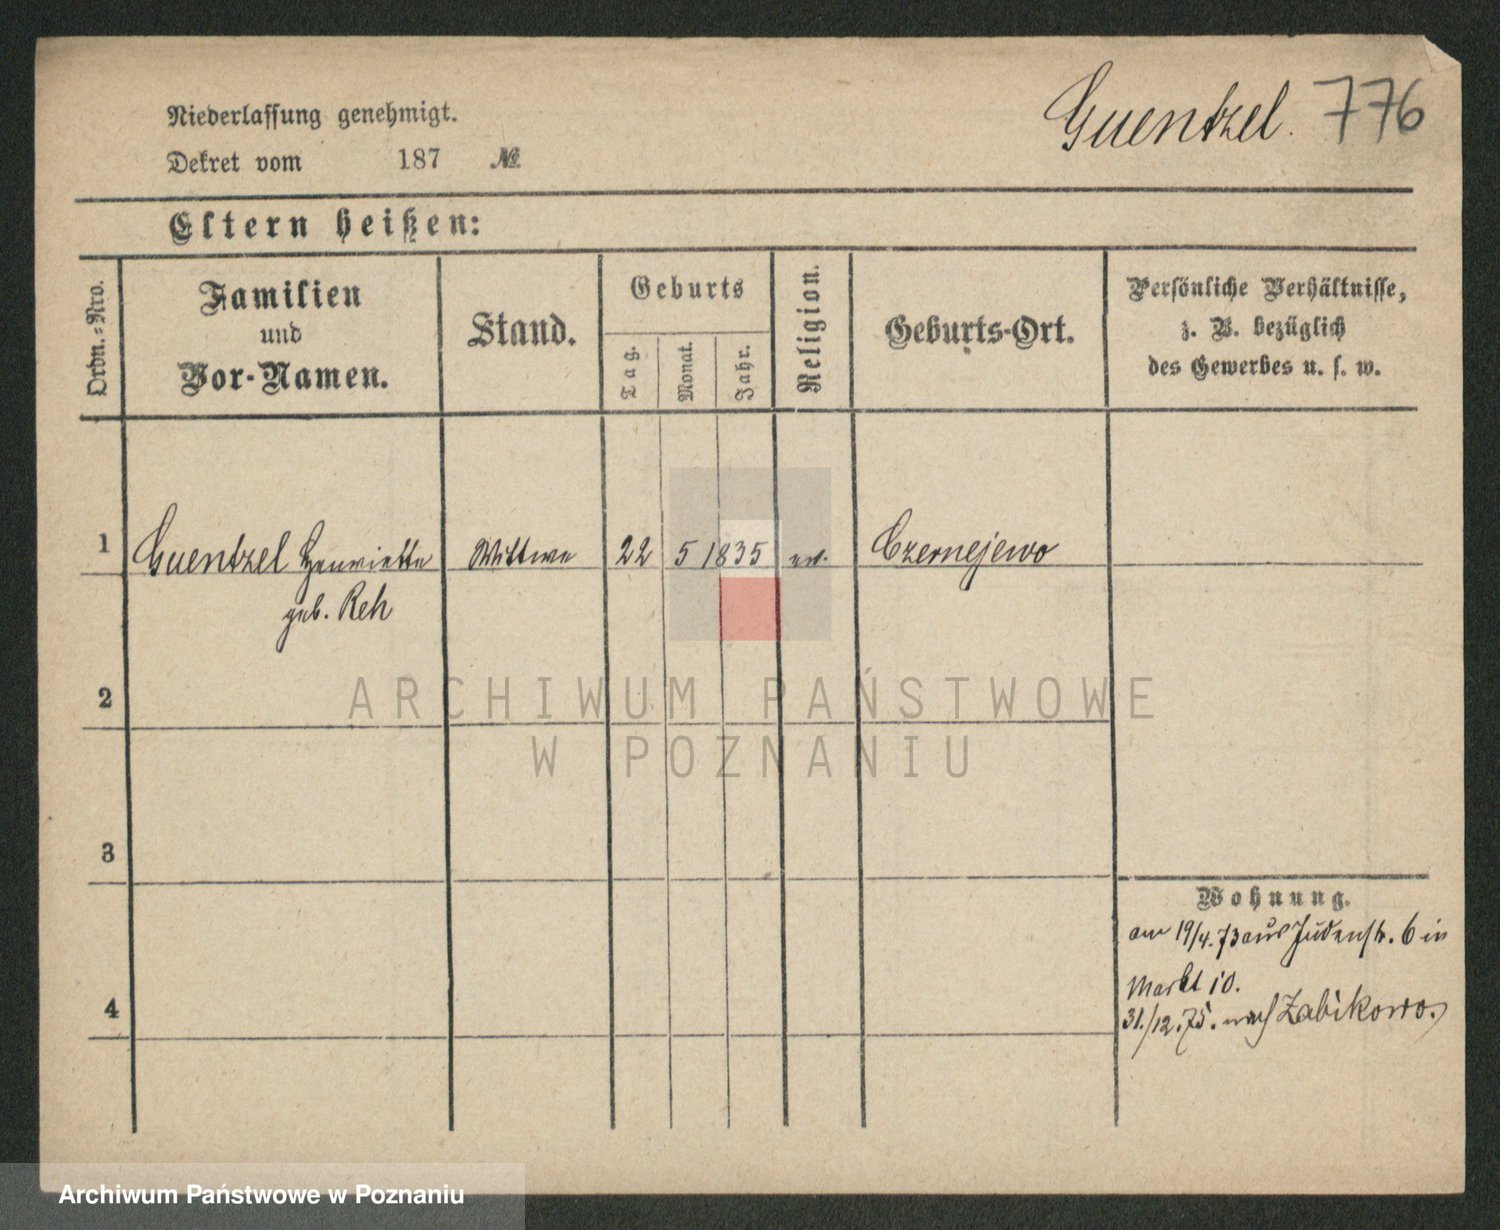 Niederlassung genehmigt.
Dekret vom 187 №
Guentzel. 776
Eltern heißen:
Ordn.=Nro.
Familien
und
Vor-Namen.
Stand.
Geburts
Tag.
Monat.
Jahr.
Religion.
Geburts-Ort.
Persönliche Verhältnisse,
z. B. bezüglich
des Gewerbes u. s. w.
1 Guentzel Henriette Wittwe 22 5 1835 ev. Czernejewo
geb. Reh
2
3
4
Wohnung.
am 19/4.73 aus Judenstr. 6 in
Markt 10.
31./12.75. nach Zabikowo.
ARCHIWUM PAŃSTWOWE
W POZNANIU
Archiwum Państwowe w Poznaniu